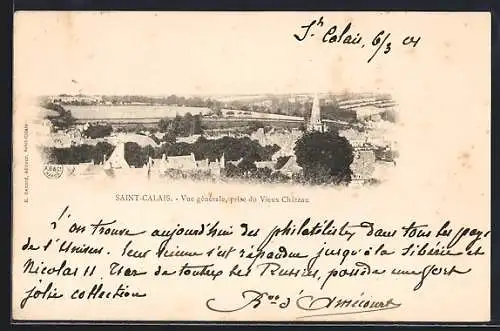 St Calais, 6/3 04
SAINT-CALAIS. - Vue générale, prise du Vieux Château
L'on trouve aujourd'hui des philatélistes dans tous les pays
de l'Univers. leur science s'est répandue jusqu'à la Sibérie et
Nicolas II Tzar de toutes les Russies, possède une fort
jolie collection
Bon d'Amécourt